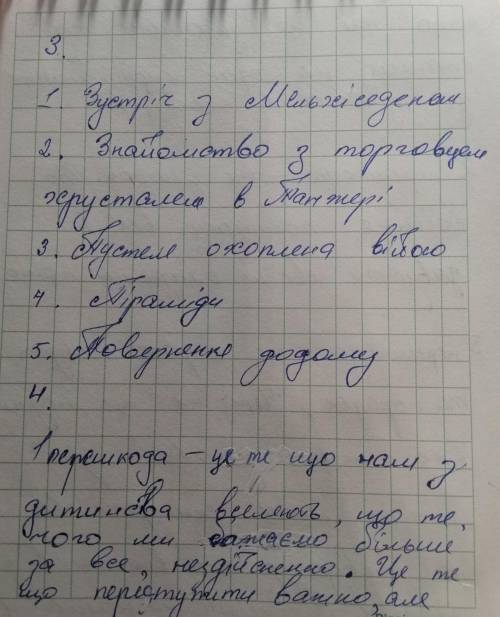 3.
1. Зустріч з Мельхіседеком
2. Знайомство з торговцем
хрусталем в Танжері
3. Пустеля охоплена війною
4. Піраміди
5. Повернення додому
4.
1 перешкода – це те що нам з
дитинства вселяють, що те,
чого ми бажаємо більше
за все, нездійсненно. Це те
що переступити важно, але